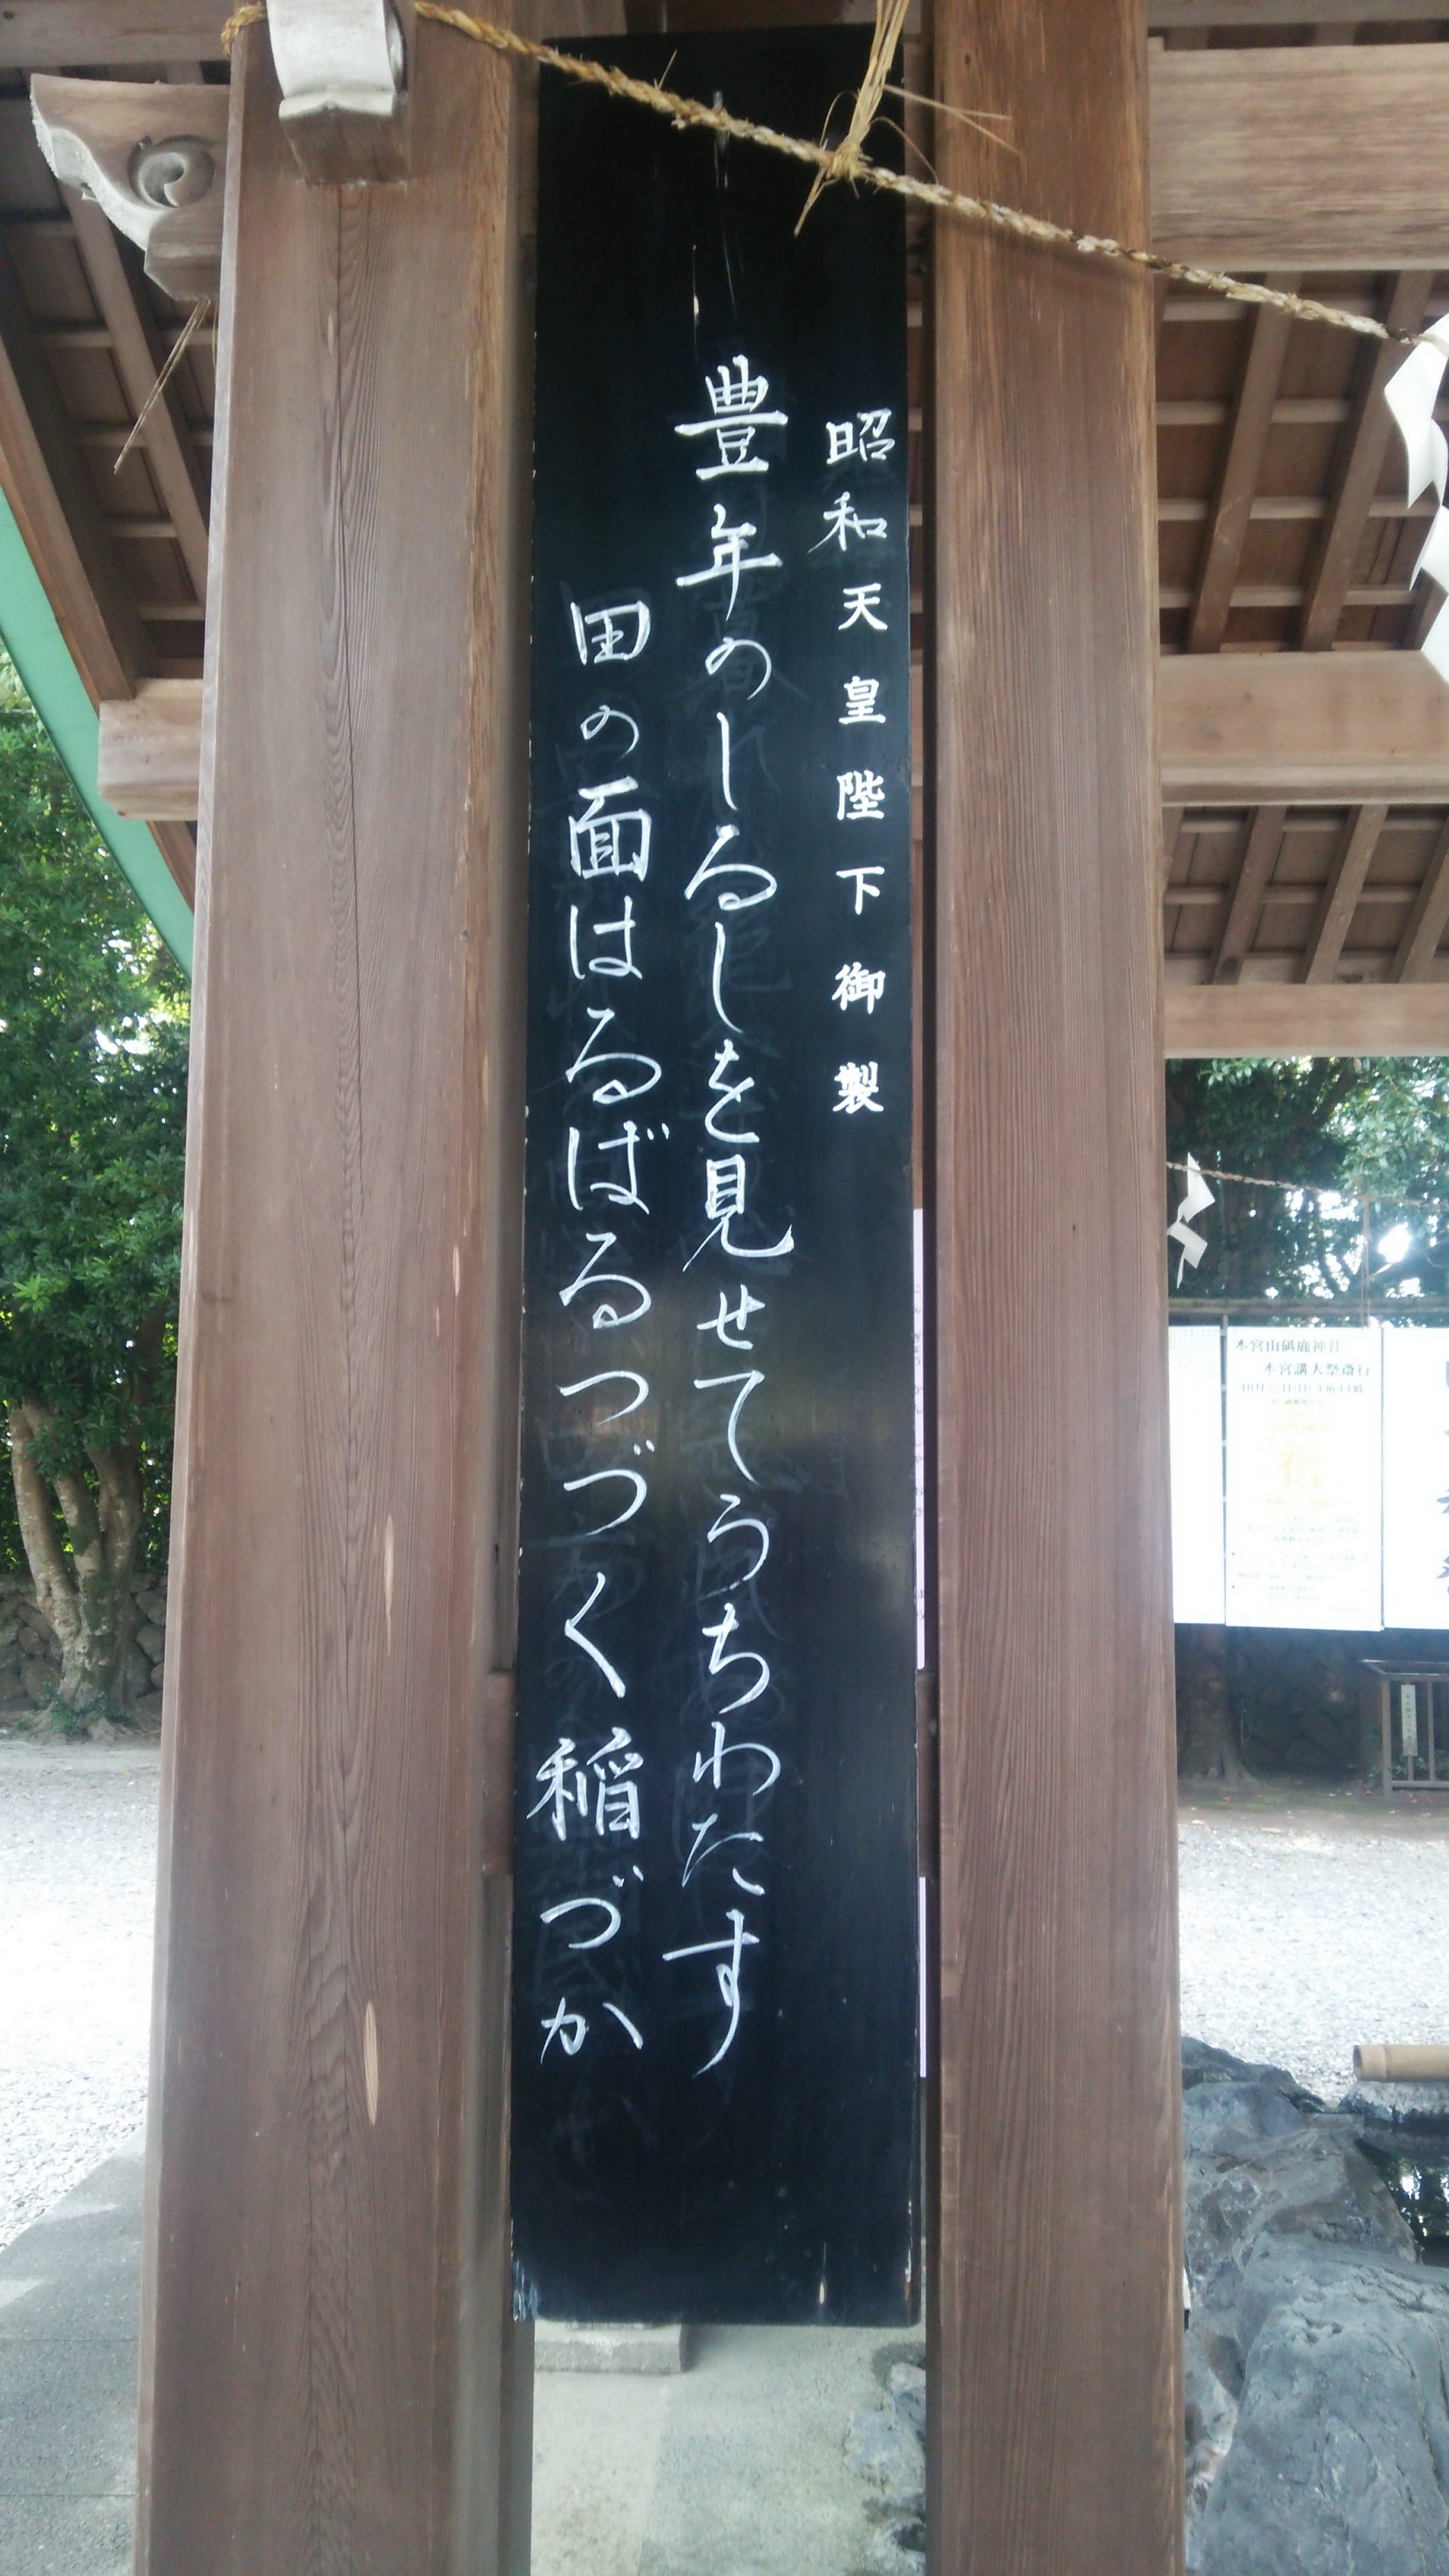 昭和天皇陛下御製
豊年のしるしを見せてうちわたす
田の面はるばるつづく稲づか
本宮山砥鹿神社
本宮講大祭斎行
祈